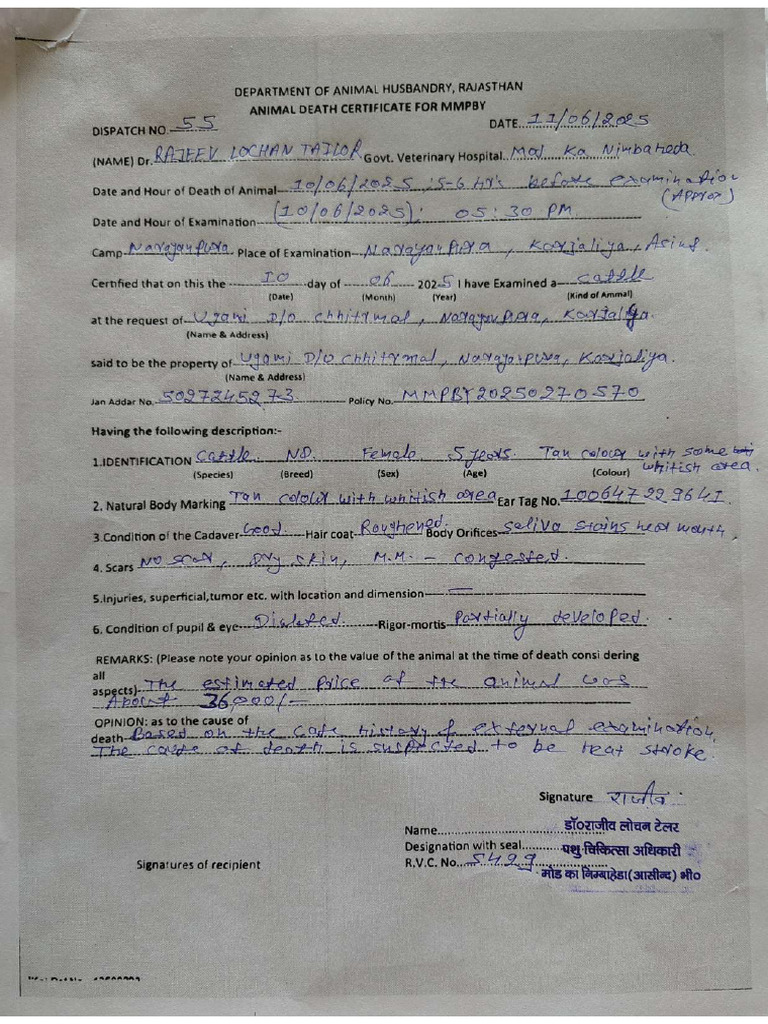 DEPARTMENT OF ANIMAL HUSBANDRY, RAJASTHAN
ANIMAL DEATH CERTIFICATE FOR MMPBY
DISPATCH NO. 55 DATE 11/06/2025
(NAME) Dr. RAJEEV LOCHAN TAILOR Govt. Veterinary Hospital Mod Ka Nimbaheda
Date and Hour of Death of Animal 10/06/2025 :5-6 Hr's before examination
(Approx)
Date and Hour of Examination (10/06/2025); 05:30 PM.
Camp Narayanpura Place of Examination Narayanpura, Karjaliya, Asind.
Certified that on this the 10 day of 06 2025 I have Examined a cattle
(Date) (Month) (Year) (Kind of Ammal)
at the request of Ugami D/o Chhitrmal, Narayanpura, Karjaliya.
(Name & Address)
said to be the property of Ugami D/o Chhitrmal, Narayanpura, Karjaliya.
(Name & Address)
Jan Addar No. 5027245273 Policy No. MMPBY20250270570
Having the following description:-
1.IDENTIFICATION Cattle ND Female 5 years. Tan colour with some
whitish area.
(Species) (Breed) (Sex) (Age) (Colour)
2. Natural Body Marking Tan colour with whitish area Ear Tag No. 100647229641
3.Condition of the Cadaver Good Hair coat- Roughened. Body Orifices saliva stains near mouth,
4. Scars No scar, Dry skin, M.M. - congested.
5.Injuries, superficial,tumor etc. with location and dimension —
6. Condition of pupil & eye Dialated. Rigor-mortis Partially developed.
REMARKS: (Please note your opinion as to the value of the animal at the time of death consi dering
all
aspects) The estimated price of the animal was
About 36,000/-
OPINION: as to the cause of
death Based on the case history & external examination,
The cause of death is suspected to be heat stroke.
Signature राजीव
Name डॉ०राजीव लोचन टेलर
Designation with seal पशु चिकित्सा अधिकारी
Signatures of recipient
R.V.C. No. 5429 मोड का निम्बाहेडा(आसीन्द) भी०